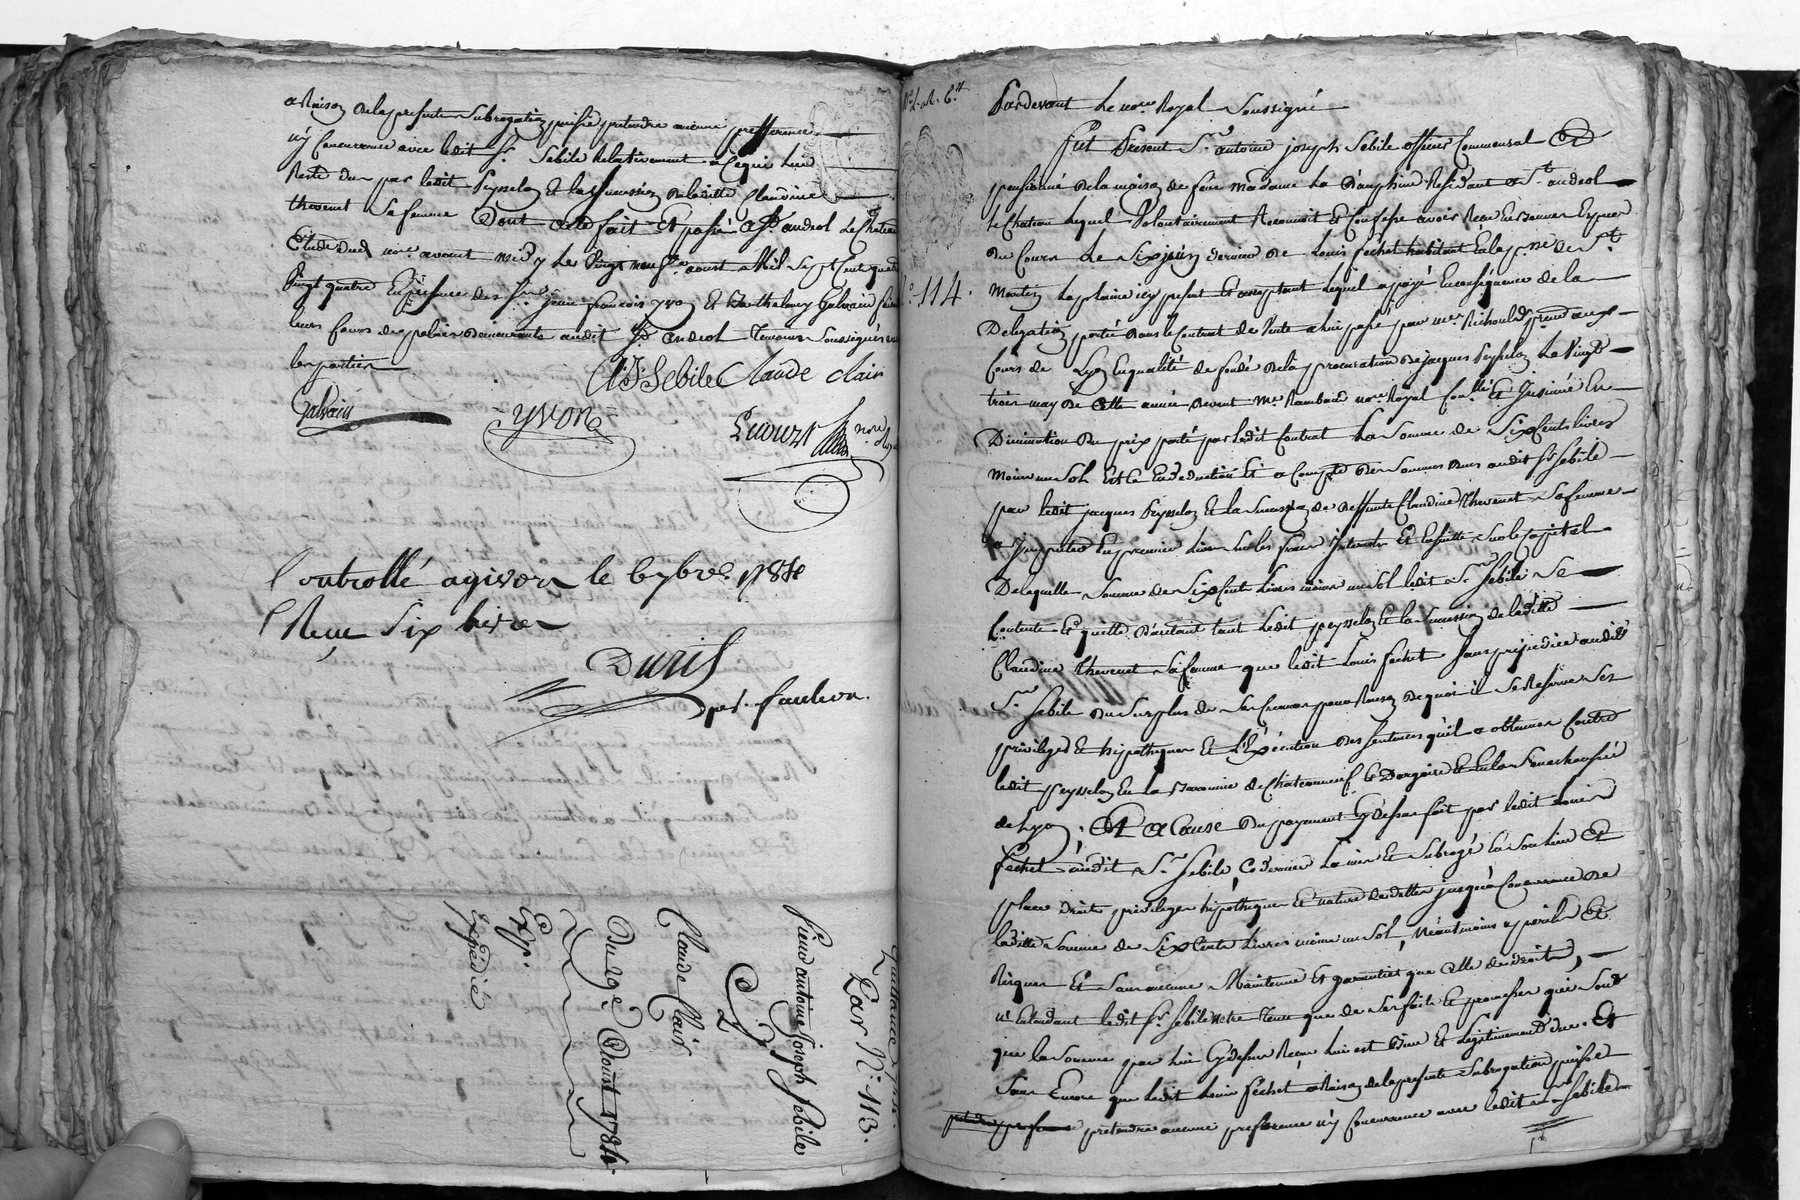 a Raison de la presente subrogation puisse pretendre aucune prefference
ny Concurrance avec ledit Sr. Sebile Relativement a Ce qui lui
Reste du par ledit Peysselon Et la succession de laditte Claudine
thevenet sa femme Dont acte fait Et passé a St andeol le Chateau
Etude dud. nore. avant midy le Vingt neuf aoust Mil Sept Cent quatre
Vingt quatre En presence des Srs. jean françois yvon Et Barthelemy Galvain
leurs foeurs de pelais demeurants audit St andeol Temoins Soussignés
les parties
A: J: Sebile Claude Clair
Galvain
yvon
nore.
Controllé a givors le 6 7bre. 1784
Reçu Six livres
Duril
per. faulcon.
Quittance
Par N.° 113.
Pierre antoine joseph Sebile
à
Claude Clair
Du 29 Aoust 1784.
Exp.
Expédié
N.° 114.
Pardevant Le nore. Royal Soussigné
fut Present Sr. antoine joseph Sebile officier Commensal Et
pensionné de la maison de feue Madame La Dauphine Residant a St. andeol
le Chateau Lequel Volontairement Reconnoit Et Confesse avoir Recu En bonnes Especes
du Cours Le Six juin dernier de Louis fechet habitant En la psse. de St.
Martin La plaine icy present Et acceptant Lequel a payé En conséquence de la
Delegation portée dans le Contrat de Vente a lui passé par me. Richoud procureur aux
Cours de Lyon En qualité de fondé de la procuration de jacques Peysselon Le Vingt
trois may de Cette année devant Me Rambaud nore. Royal Conlé. Et Insinué En
Diminution du prix porté par ledit Contrat La Somme de Six Cents livres
moins un Sol Et Ce En deduction Et a Compte des Sommes dues audit Sr. Sebile
par ledit jacques Peysselon Et la Succession de deffunte Claudine thevenet Sa femme
a Imputer En premier lieu sur les frais Interets Et Ensuitte Sur le Capital
De laquelle Somme de Six Cents Livres moins un Sol ledit Sr. Sebile Se
Contente Et quitte D'autant tant Ledit peysselon Et la Succession de laditte
Claudine thevenet Sa femme que ledit Louis fechet Sans prejudice audit
Sr. Sebile du Surplus de Ses Creances pour Raison de quoi il Se Reserve Ses
privileges Et hipotheques Et L'Execution des Sentences qu'il a obtenues Contre
ledit peysselon En la Baronnie de Chateauneuf Et Dargoire Et En la Senechaussée
de Lyon, Et a Cause du payement Cy dessus fait par ledit Louis
fechet audit Sr. Sebile, Ce dernier La mis Et Subrogé En Son lieu Et
place droits privileges hipotheques Et nature de dettes jusqu'a Concurrence de
laditte Somme de Six Cents Livres moins un Sol, Néantmoins a perils Et
Risques Et Sans aucune Maintenue Et garantie que Celle de droit,
n'Entendant ledit Sr. Sebile Etre tenu que de Ses faits Et promesses qui Sont
que la Somme par lui Cy dessus Recue lui est Due Et Legitimement due. Et
Sans Encore que ledit Louis fechet a Raison de la presente Subrogation puisse
pretendre aucune preference ny Concurrence avec ledit Sr. Sebile